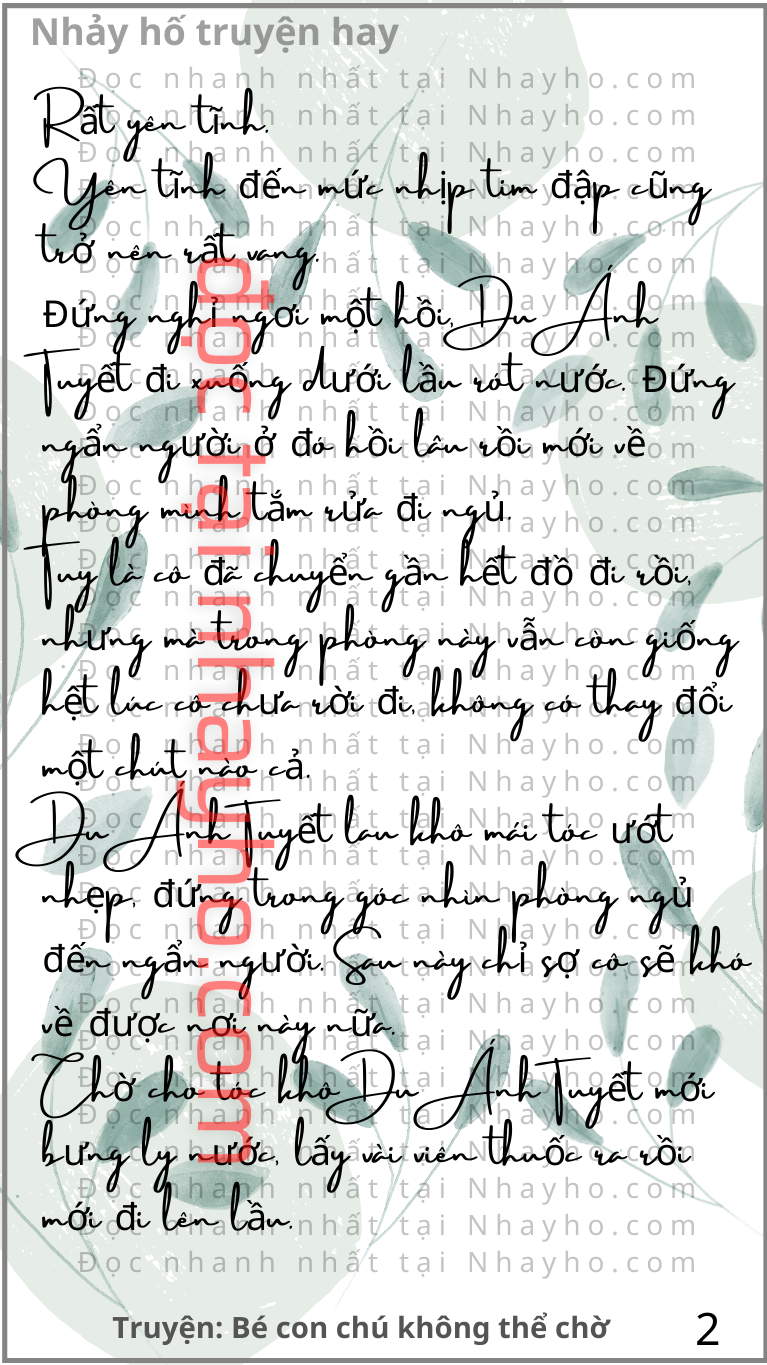 Nhảy hố truyện hay
Rất yên tĩnh.
Yên tĩnh đến mức nhịp tim đập cũng
trở nên rất vang.
Đứng nghỉ ngơi một hồi, Du Ánh
Tuyết đi xuống dưới lầu rót nước. Đứng
ngẩn người ở đó hồi lâu rồi mới về
phòng mình tắm rửa đi ngủ.
Tuy là cô đã chuyển gần hết đồ đi rồi,
nhưng mà trong phòng này vẫn còn giống
hệt lúc cô chưa rời đi, không có thay đổi
một chút nào cả.
Du Ánh Tuyết lau khô mái tóc ướt
nhẹp, đứng trong góc nhìn phòng ngủ
đến ngẩn người. Sau này chỉ sợ cô sẽ khó
về được nơi này nữa.
Chờ cho tóc khô Du Ánh Tuyết mới
bưng ly nước, lấy vài viên thuốc ra rồi
mới đi lên lầu.
đọc tại nhayho.com
Đọc nhanh nhất tại Nhayho.com
Truyện: Bé con chú không thể chờ
2